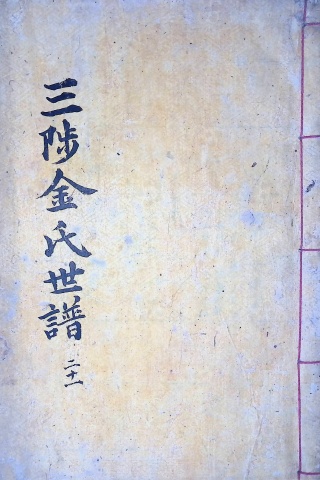 三陟金氏世譜
二十一